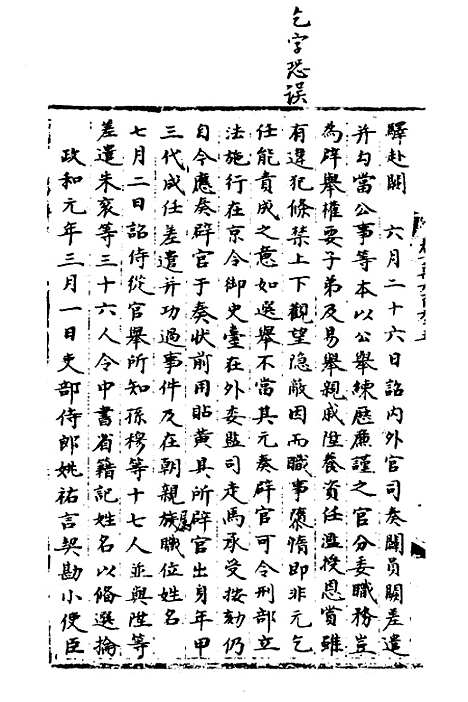 乞字恐误
驛赴闕　六月二十六日詔内外官司奏闢員闕差遣
并勾當公事等本以公舉練歷廉謹之官分委職務豈
為辟舉權要子弟及易舉親戚陞養資任濫授恩賞雖
有違犯條禁上下觀望隐蔽因而職事隳惰即非元乞
任能責成之意如選舉不當其元奏辟官可令刑部立
法施行在京令御史臺在外委監司走馬承受按劾仍
自今應奏辟官于奏狀前用貼黃具所辟官出身年甲
三代成任差遣并功過事件及在朝親族職位姓名
七月二日詔侍從官舉所知孫穆等十七人並與陞等
差遣朱衮等三十六人令中書省籍記姓名以俻選掄
政和元年三月一日吏部侍郎姚祐言契勘小使臣